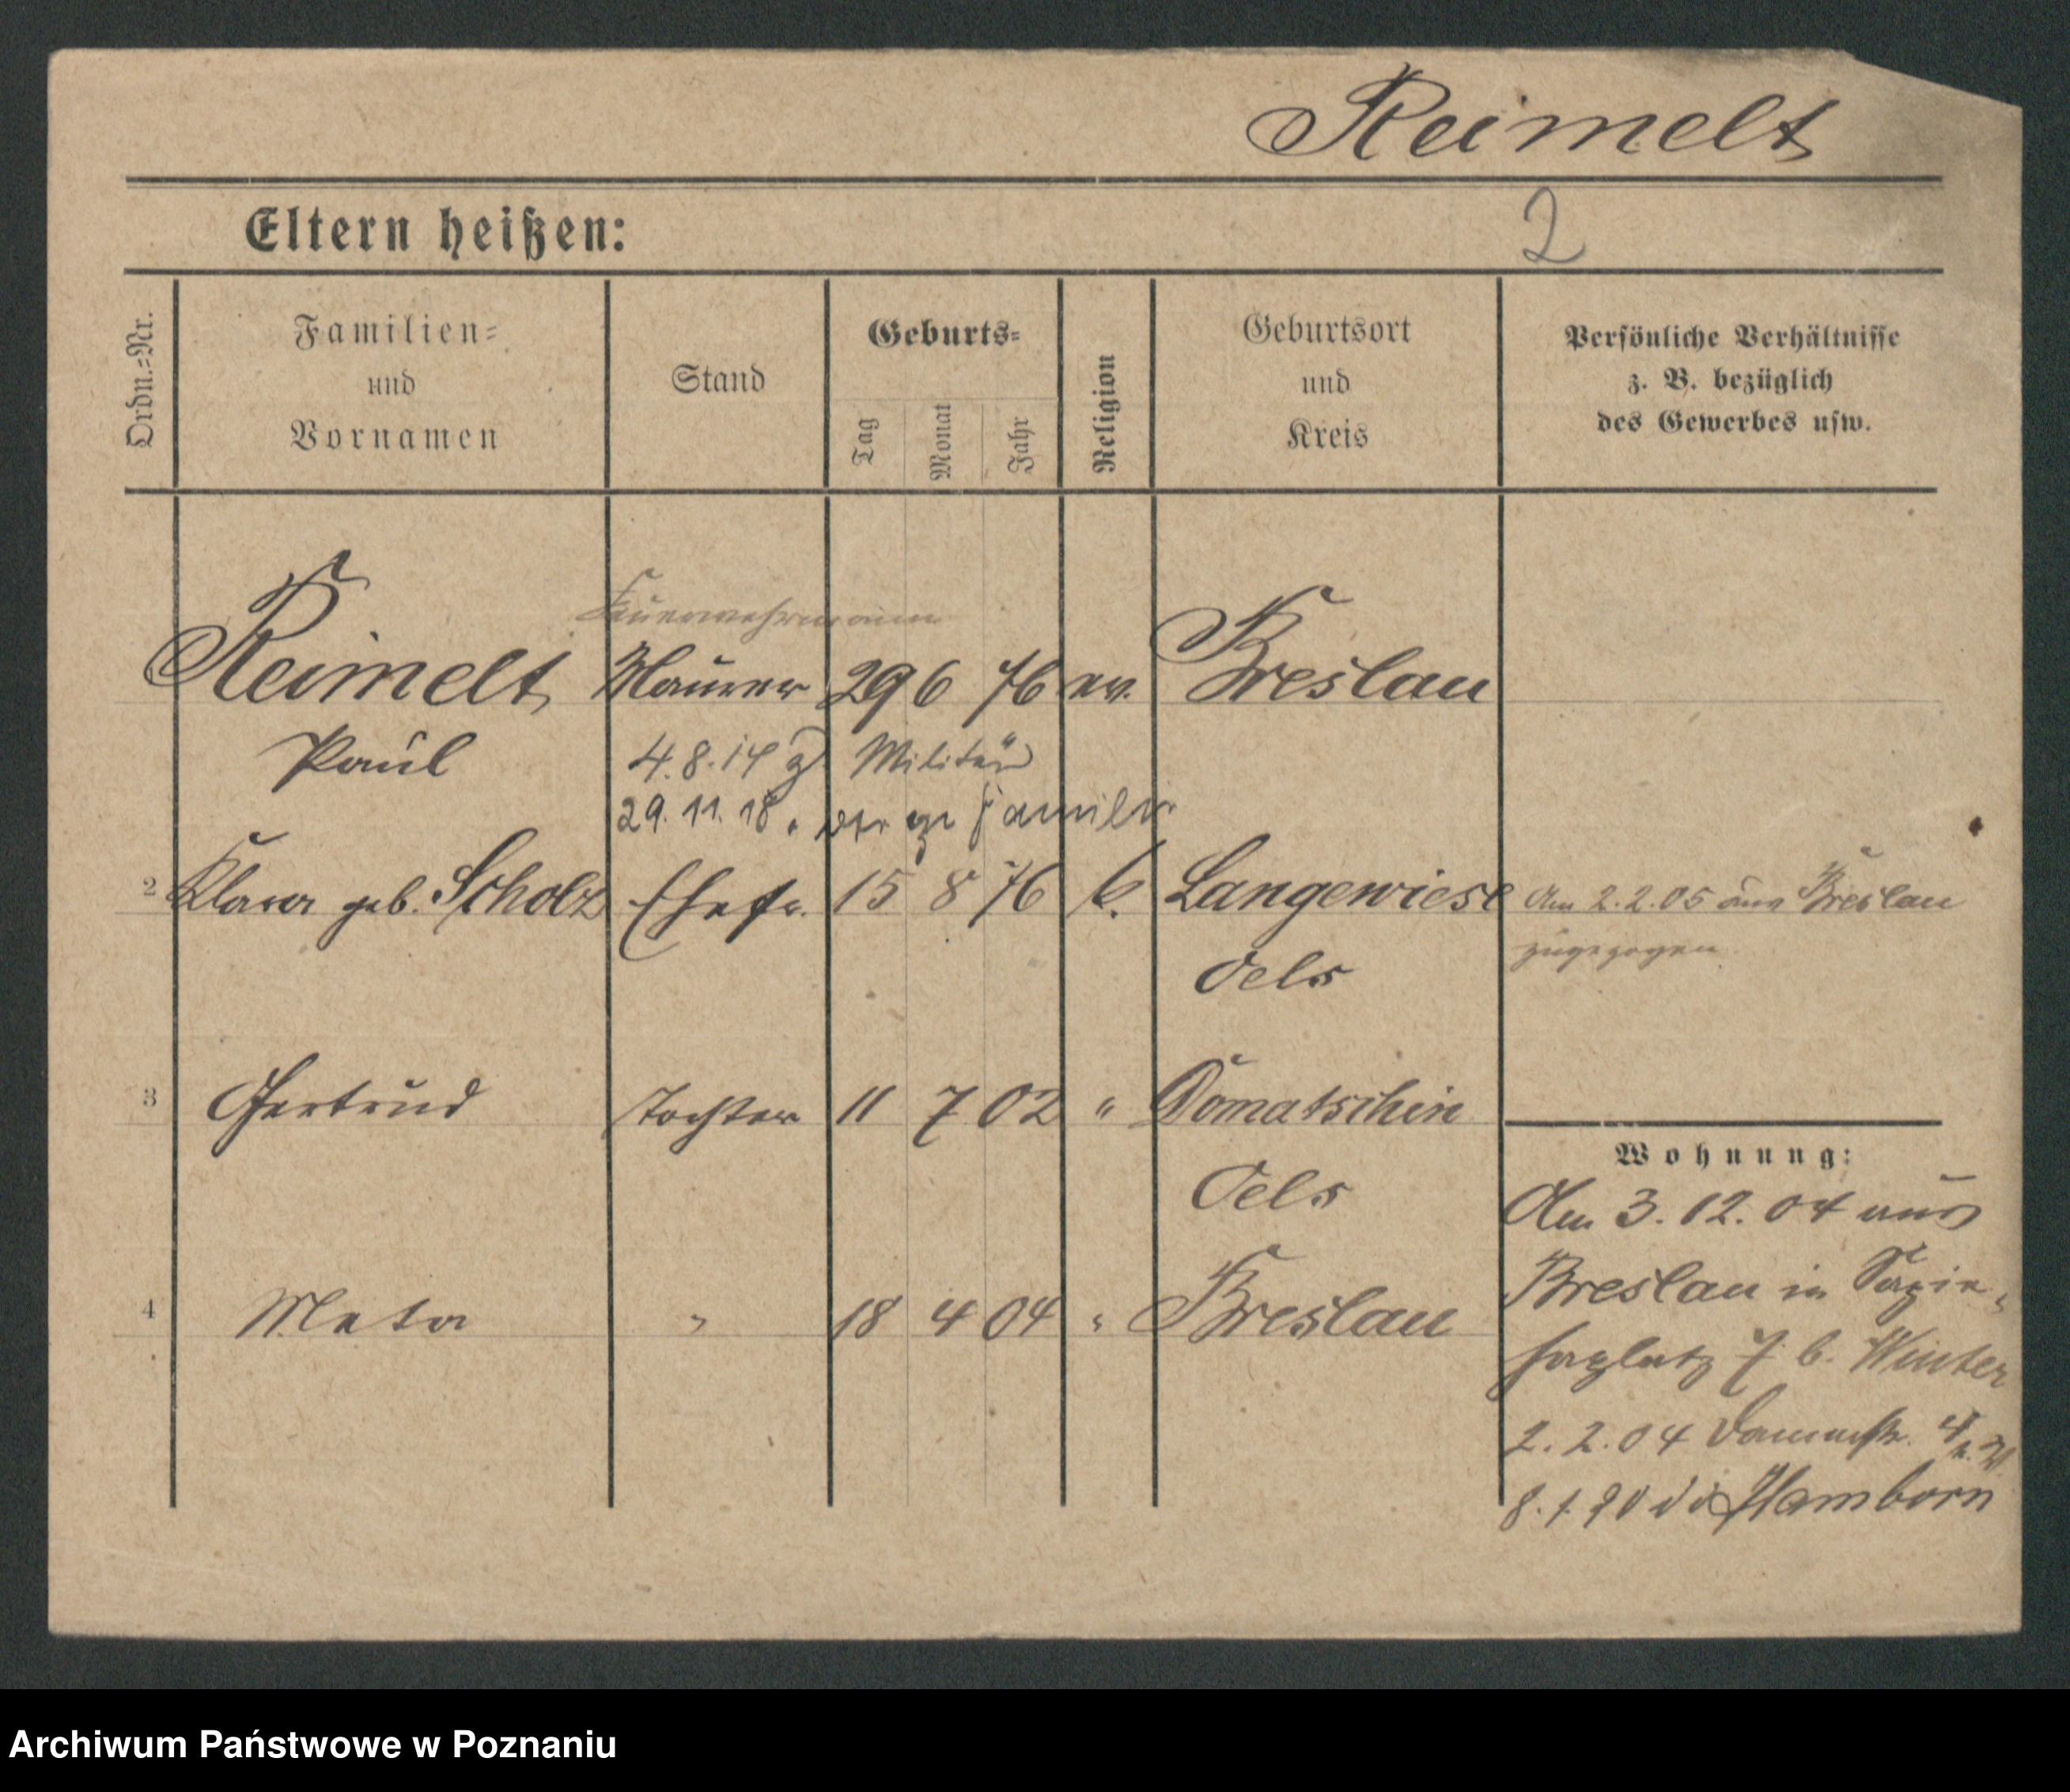 Reimelt
Eltern heißen:
2
Ordn.=Nr.
Familien=
und
Vornamen
Stand
Geburts=
Tag
Monat
Jahr
Religion
Geburtsort
und
Kreis
Persönliche Verhältnisse
z. B. bezüglich
des Gewerbes usw.
Feuerwehrmann
Reimelt Maurer 29 6 76 ev. Breslau
Paul
4.8.14 z Militär
29.11.18. zur Familie
2 Klara geb. Scholz Ehefr. 15 8 76 k. Langewiese
Oels
Am 2.2.05 aus Breslau
zugezogen
3 Gertrud Tochter 11 7 02 " Domatschin
Oels
4 Meta " 18 4 04 " Breslau
Wohnung:
Am 3.12.04 aus
Breslau in Sapie-
haplatz 7 b. Winter
2.2.04 Dammstr. 4
8.1.20 Hamborn
Archiwum Państwowe w Poznaniu